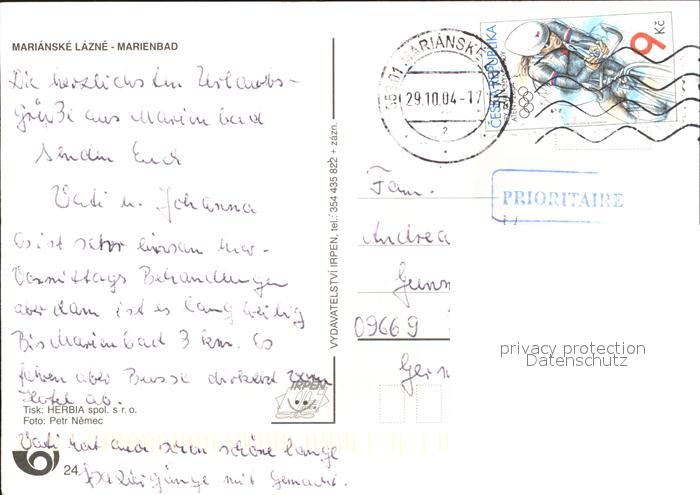 MARIÁNSKÉ LÁZNĚ - MARIENBAD
Die herzlichsten Urlaubs-
grüße aus Marienbad
Senden Euch
Vati u. Johanna
es ist sehr einsam hier.
Vormittags Behandlungen
aber dann ist es langweilig
Bis Marienbad 3 km. Es
fahren aber Busse direkt vom
Hotel ab.
Vati hat auch schon schöne lange
Spaziergänge mit gemacht.
Tisk: HERBIA spol. s r. o.
Foto: Petr Němec
24.
VYDAVATELSTVÍ IRPEN, tel.: 354 435 822 + zázn.
IRPEN
MARIÁNSKÉ
29.10.04-17
2
ČESKÁ REPUBLIKA
9 Kč
PRIORITAIRE
Fam.
Andrea
09669
privacy protection
Datenschutz